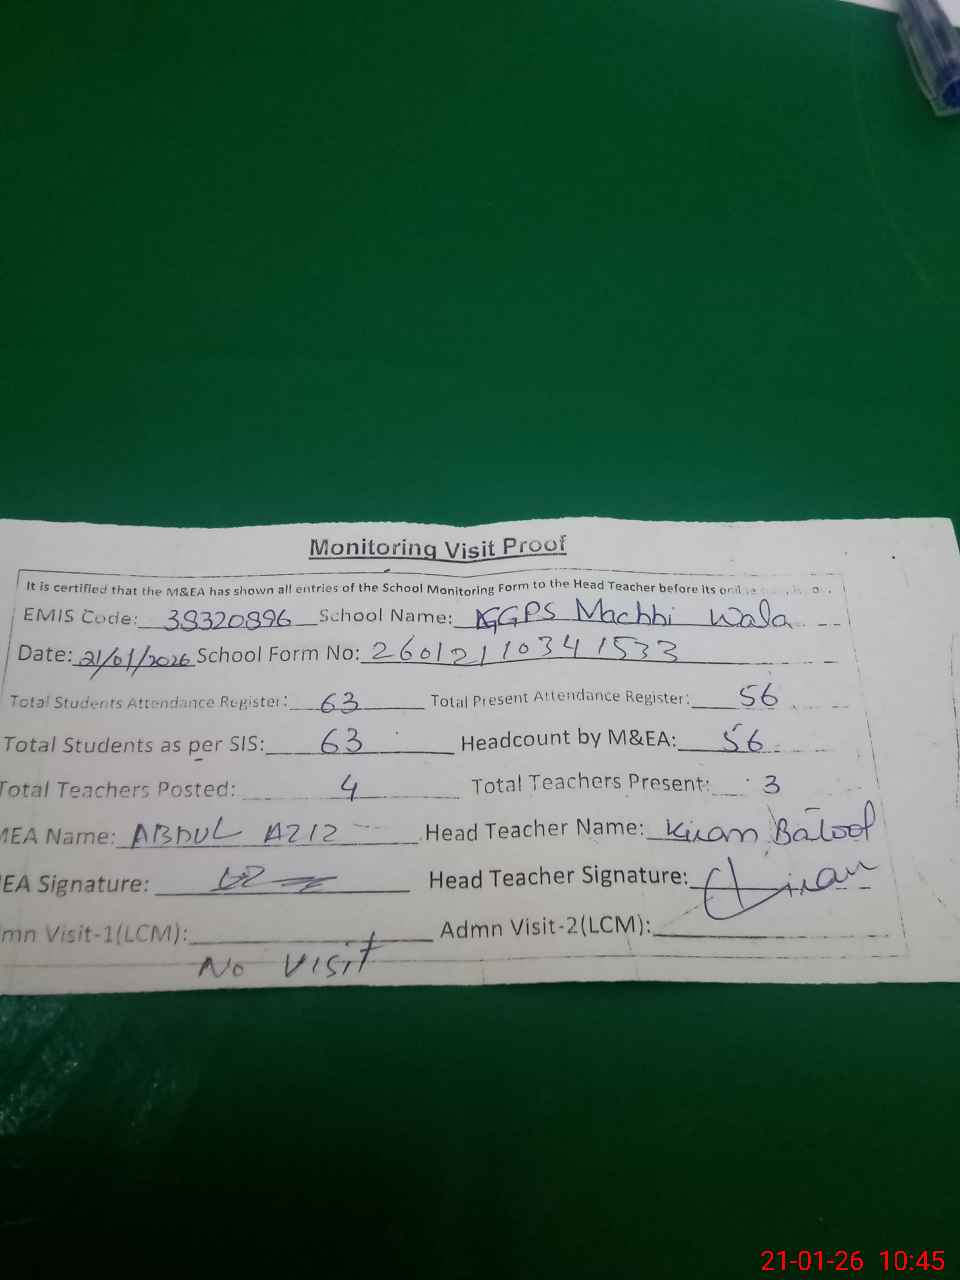 Monitoring Visit Proof
It is certified that the M&EA has shown all entries of the School Monitoring Form to the Head Teacher before its
EMIS Code: 38320896 School Name: GGPS Machhi Wala
Date: 21/01/2026 School Form No: 2601211034 1533
Total Students Attendance Register: 63 Total Present Attendance Register: 56
Total Students as per SIS: 63 Headcount by M&EA: 56
Total Teachers Posted: 4 Total Teachers Present: 3
MEA Name: ABDUL AZIZ Head Teacher Name: Kiran Batool
EA Signature: Head Teacher Signature: Kiran
mn Visit-1(LCM): Admn Visit-2(LCM):
No VISIT
21-01-26 10:45